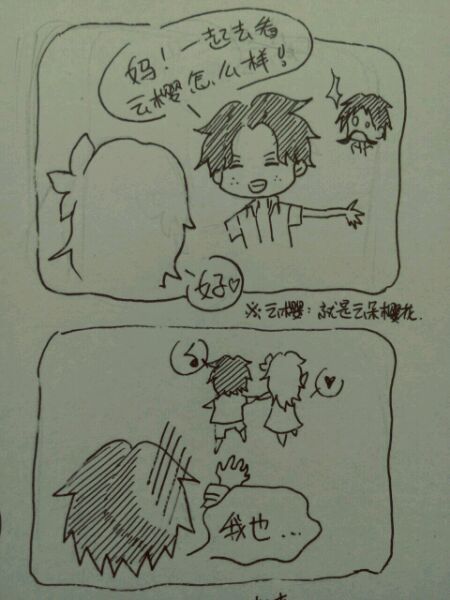 妈！一起去看
云樱怎么样！
好♡
※云樱：就是云朵樱花.
♪
♥
我也...